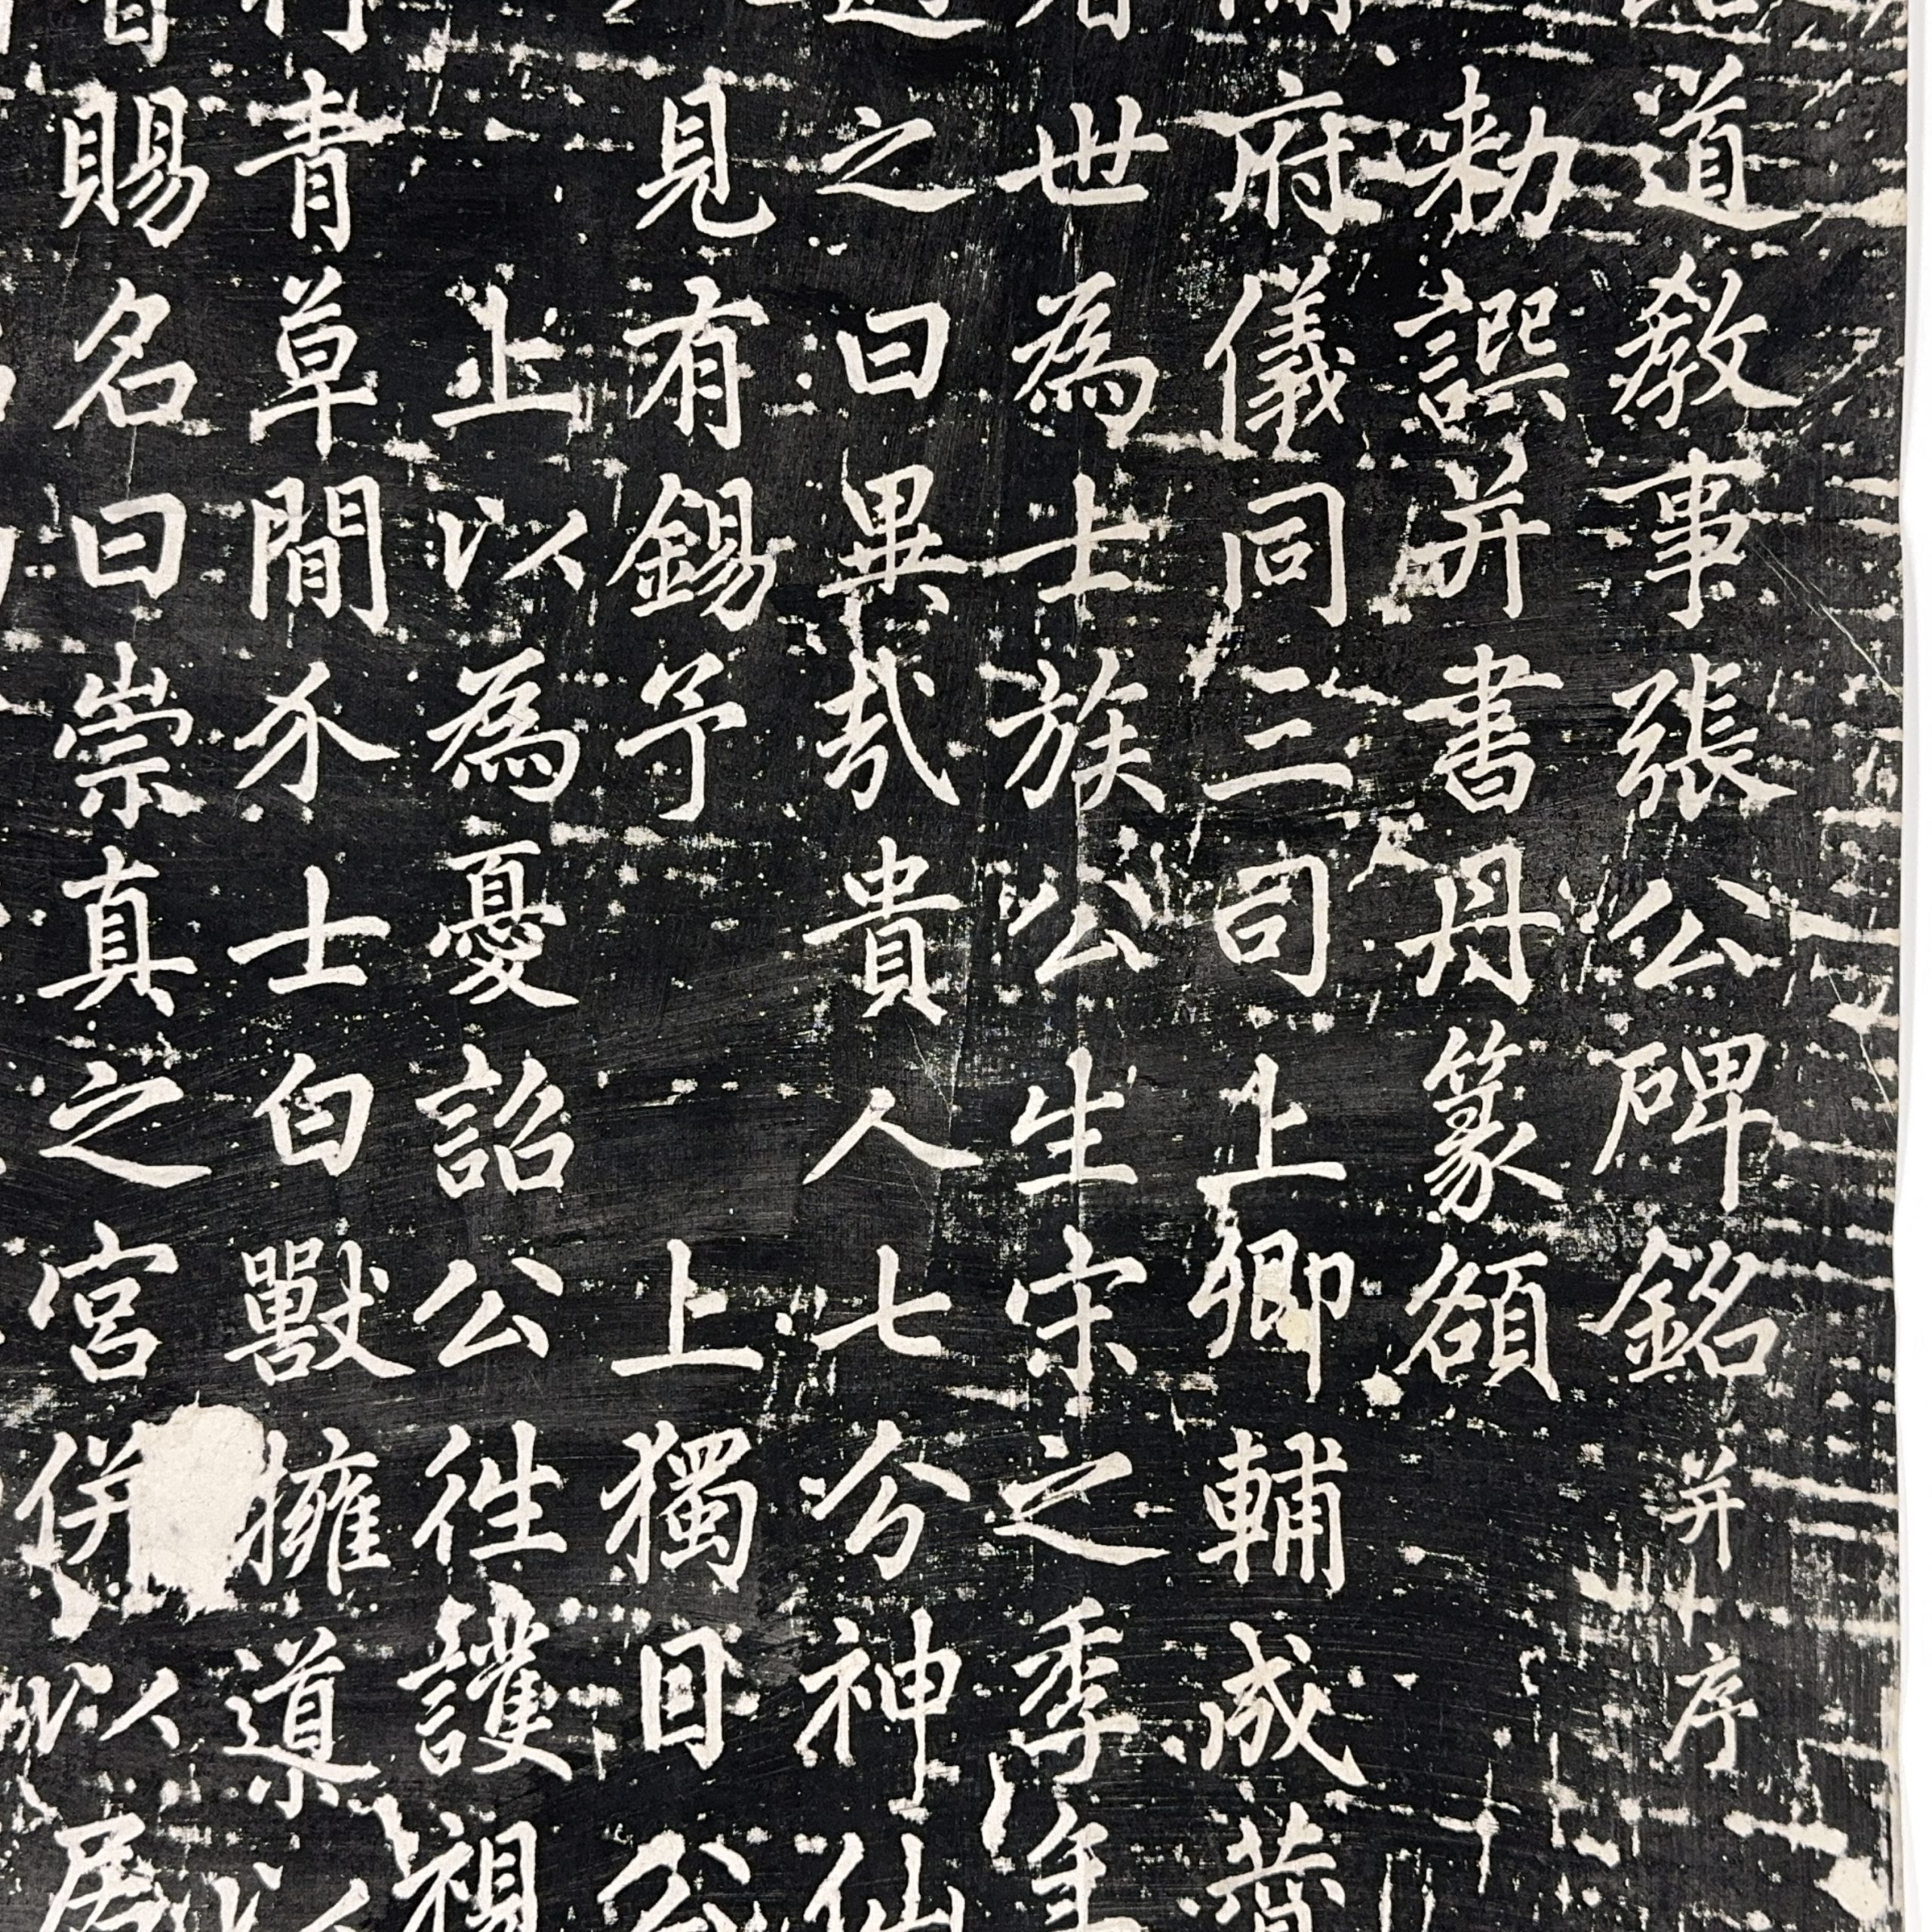 道教事張公碑銘并序
勅譔并書丹篆額
府儀同三司上卿輔成贊
世為士族公生宋之季年
之曰異哉貴人七分神仙
見有錫予 上獨目公
止以為憂詔公往護視
青草間介士白獸擁道以
賜名曰崇真之宮併以居